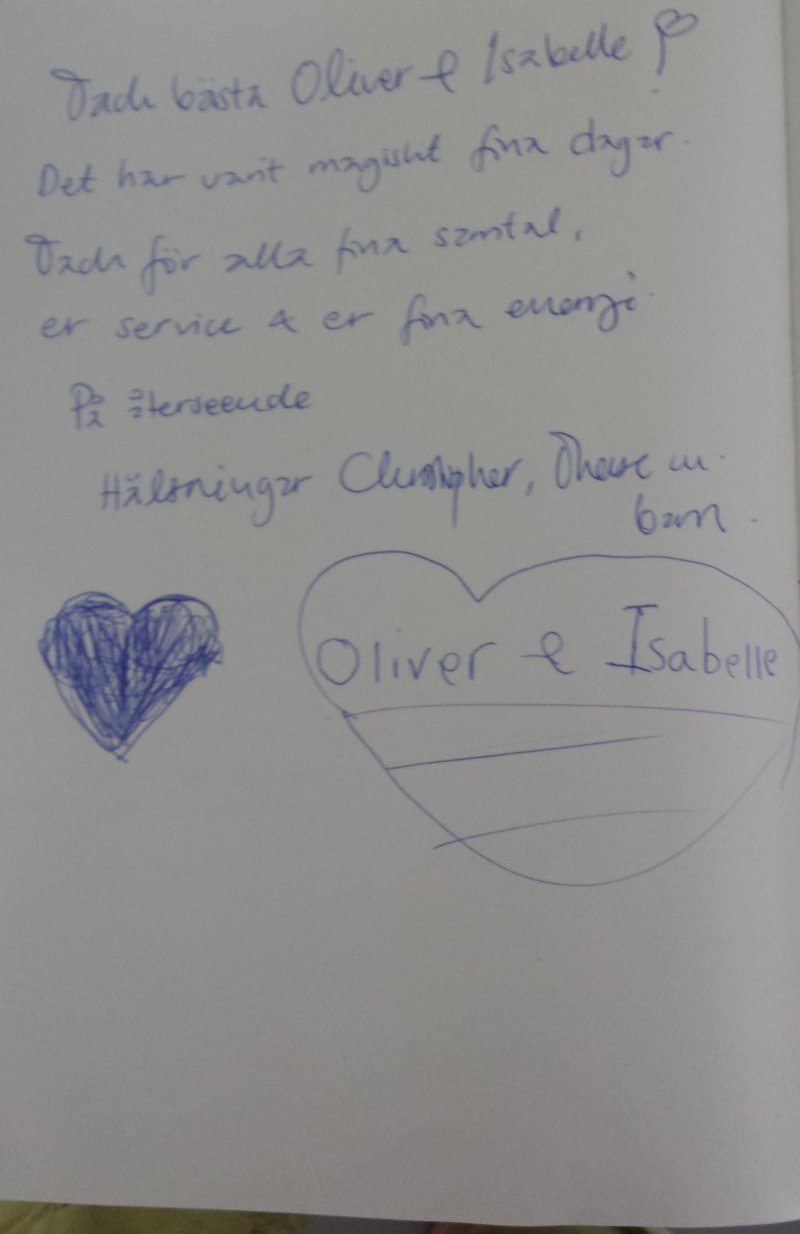 Tack bästa Oliver & Isabelle
Det har varit magiskt fina dagar.
Tack för alla fina samtal,
er service & er fina energi.
På återseende
Hälsningar Christopher, Therese m.
barn.
Oliver & Isabelle